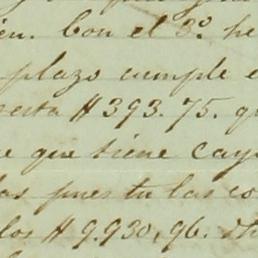 Con el 3º
plazo cumple e
esta $ 393.75. q
e que tiene cay
las pues tu las co
los $ 9.930,96.